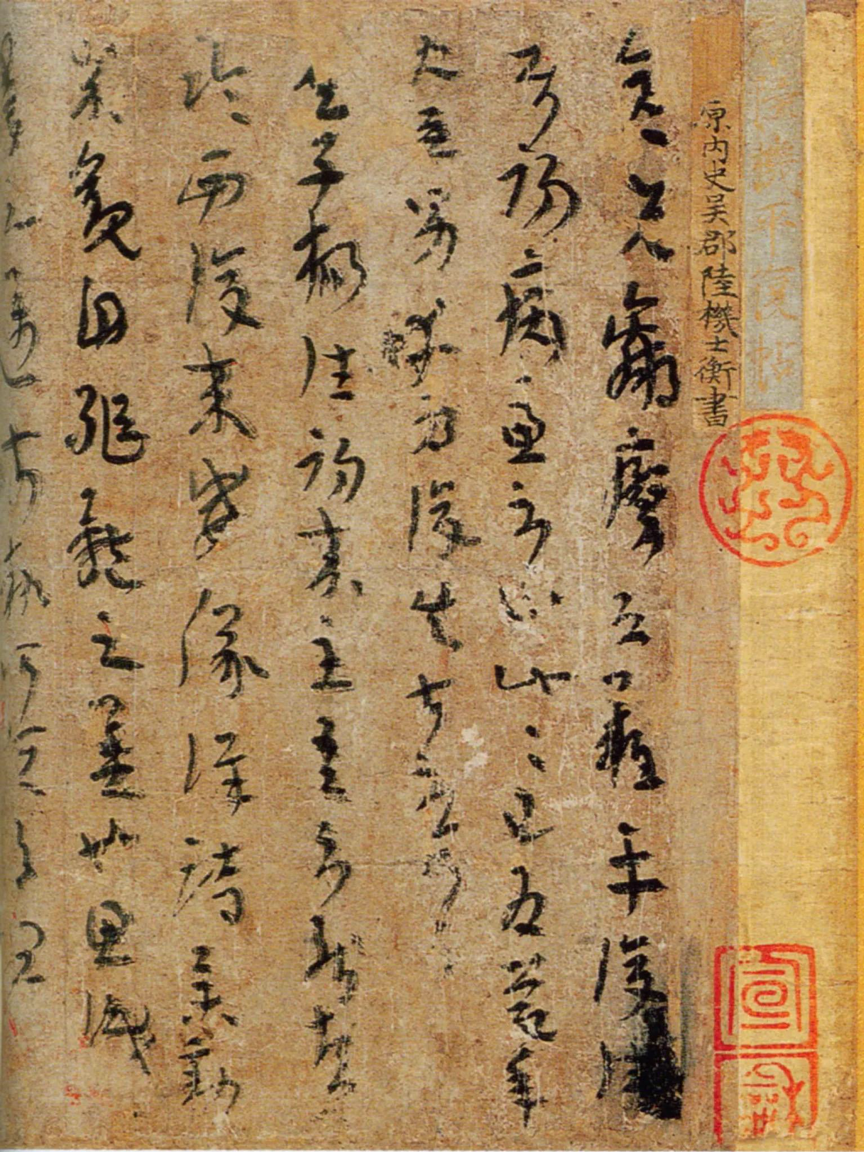 陸機平復帖
原内史吳郡陸機士衡書
彦先羸瘵恐難平復往
屬初病慮不止此〻已為慶承
使唯男幸為復失前憂耳
吳子楊往初來主吾不能盡
臨西復來威儀詳跱舉動
成觀自軀體之美也思識
量之邁前執所恒有宜